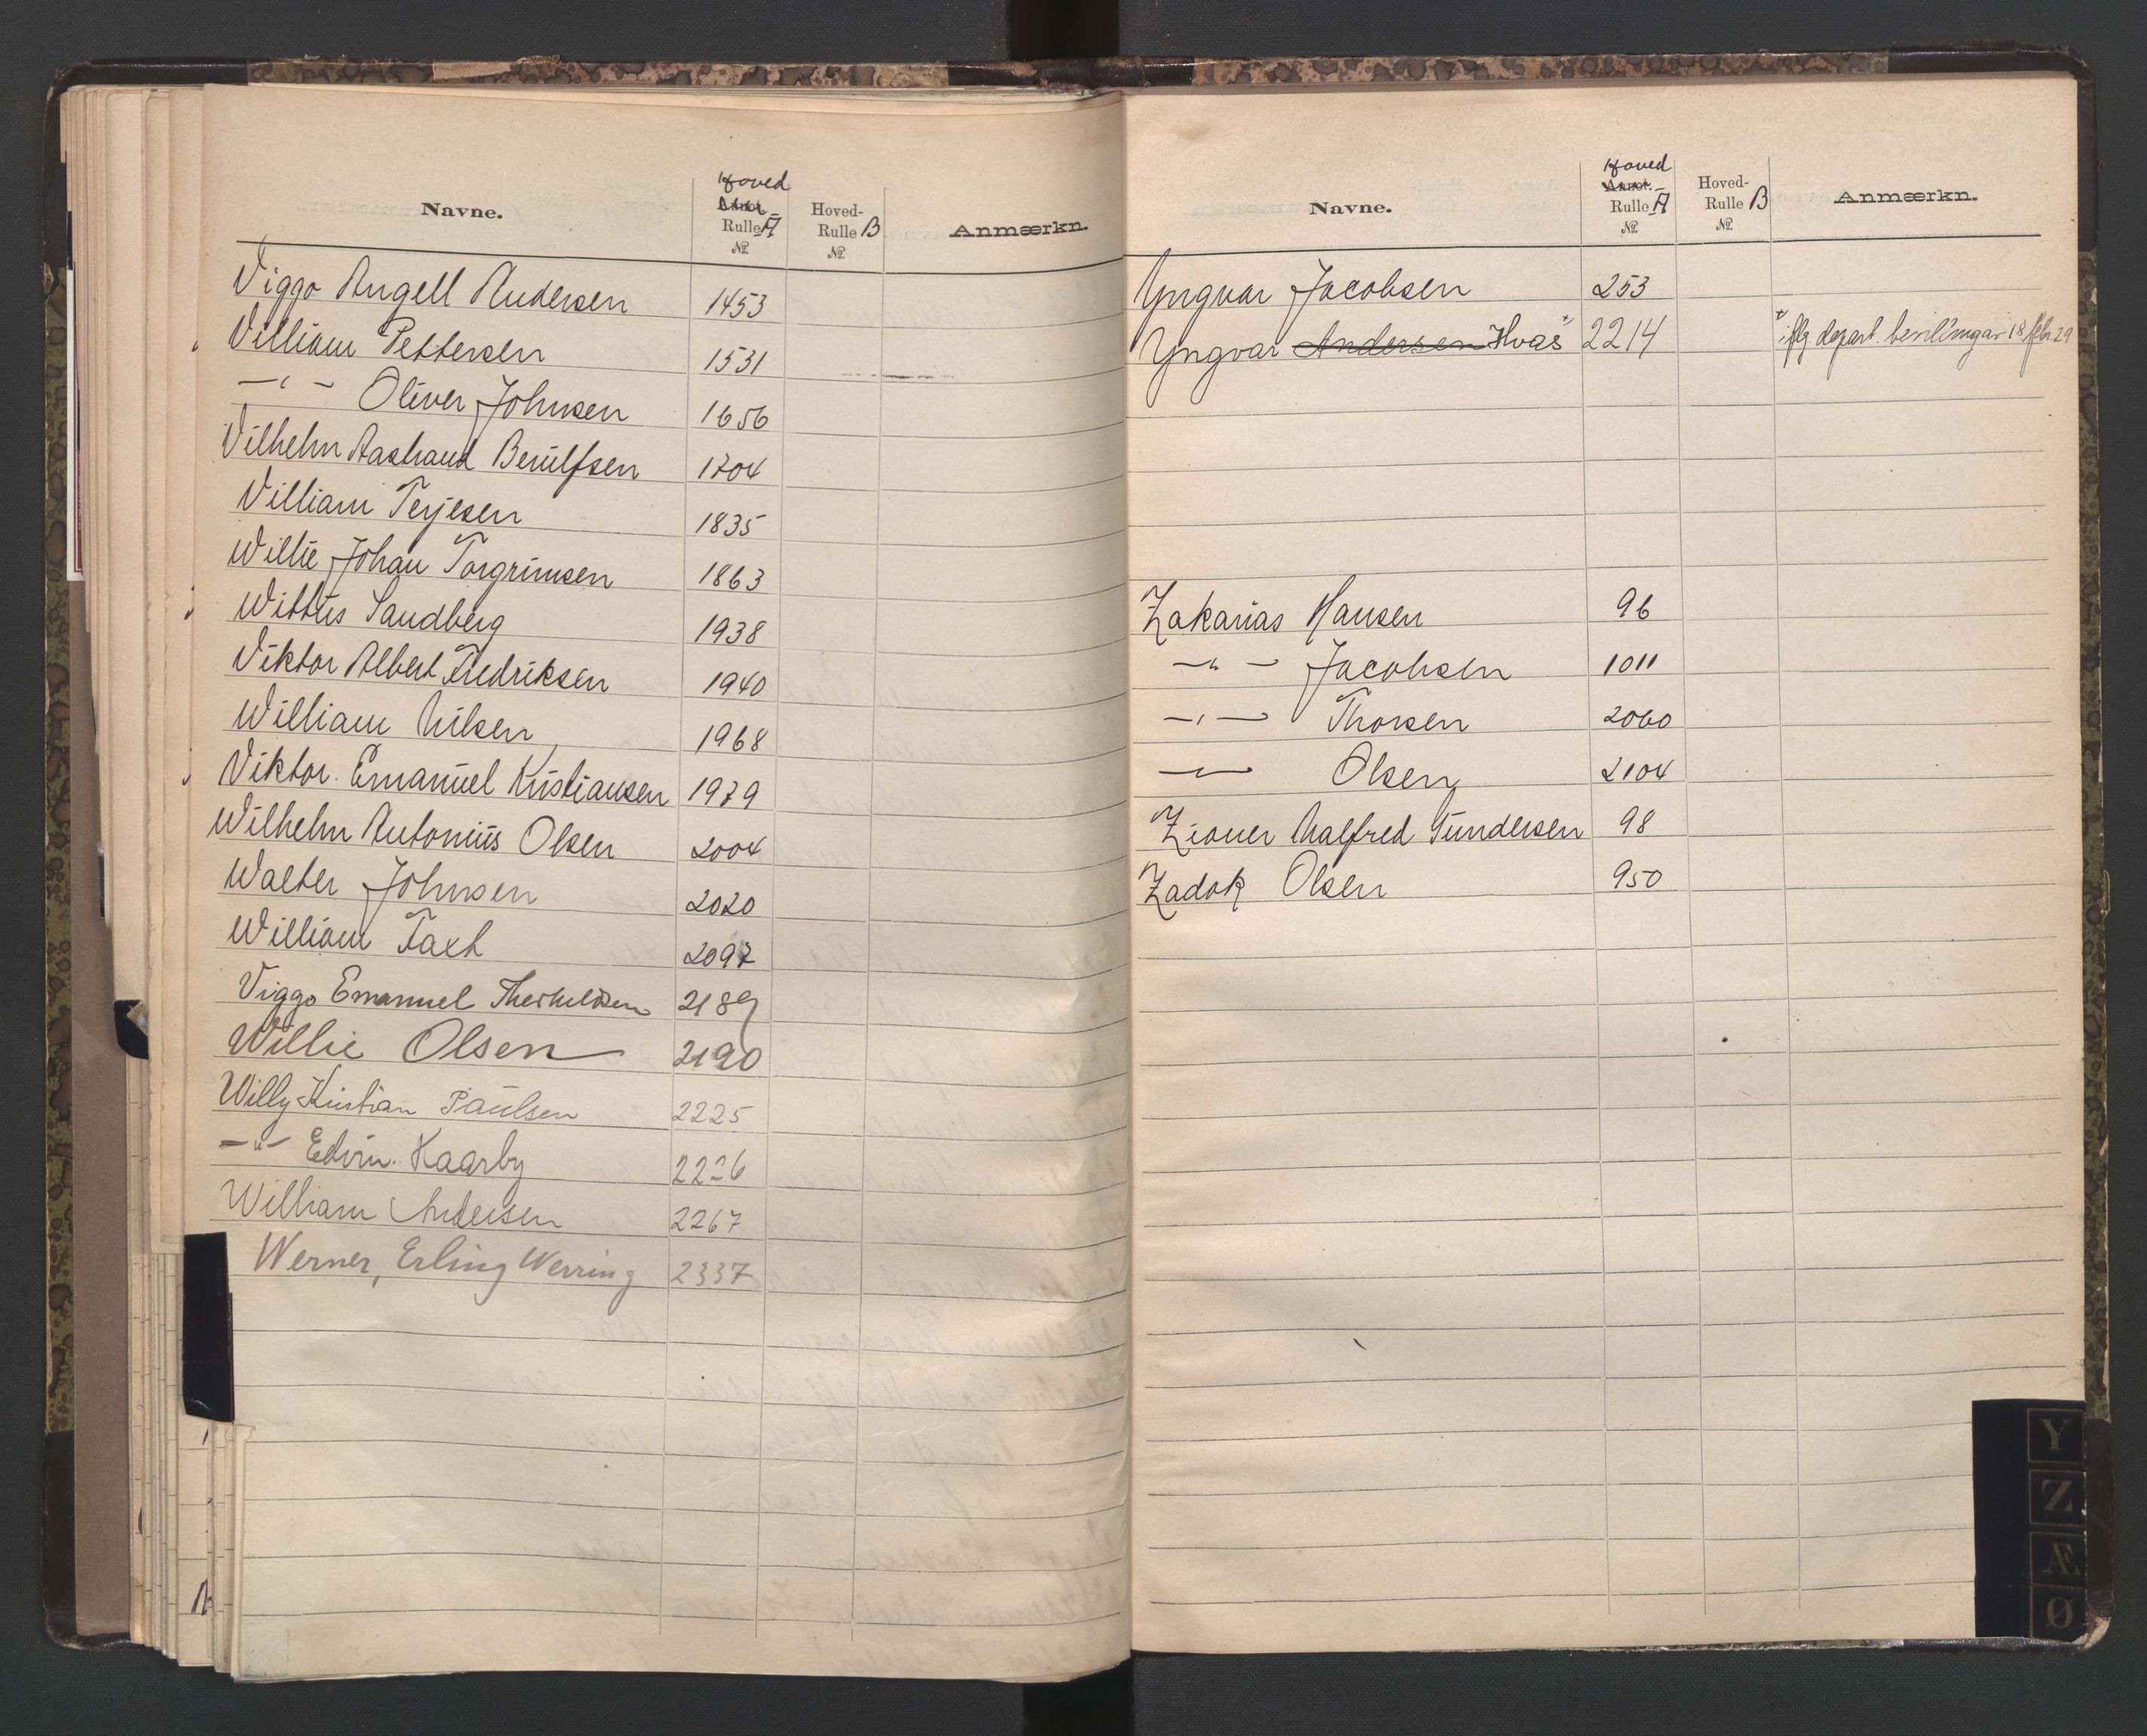 Navne. Hoved Annot. Rulle A № Hoved-Rulle B № Anmærkn.
Viggo Angell Andersen 1453
William Pettersen 1531
—"— Oliver Johnsen 1656
Vilhelm Aastrand Berulfsen 1704
William Terjesen 1835
Willie Johan Torgrimsen 1863
Wittus Sandberg 1938
Viktor Albert Fredriksen 1940
William Nilsen 1968
Viktor Emanuel Kristiansen 1979
Wilhelm Antonius Olsen 2004
Walter Johnsen 2020
William Taxt 2097
Viggo Emanuel Therkildsen 2189
Willie Olsen 2190
Willy Kristian Paulsen 2225
—"— Edvin Kaarby 2226
William Andersen 2267
Werner, Erling Werring 2337
Navne. Hoved Annot. Rulle A № Hoved-Rulle B № Anmærkn.
Yngvar Jacobsen 253
Yngvar Andersen Hvas* 2214 * iflg. depart. bevillingav 18 febr. 29
Zakarias Hansen 96
—"— Jacobsen 1011
—"— Thorsen 2060
—"— Olsen 2104
Zioner Nalfred Gundersen 98
Zadok Olsen 950
Y
Z
Æ
Ø